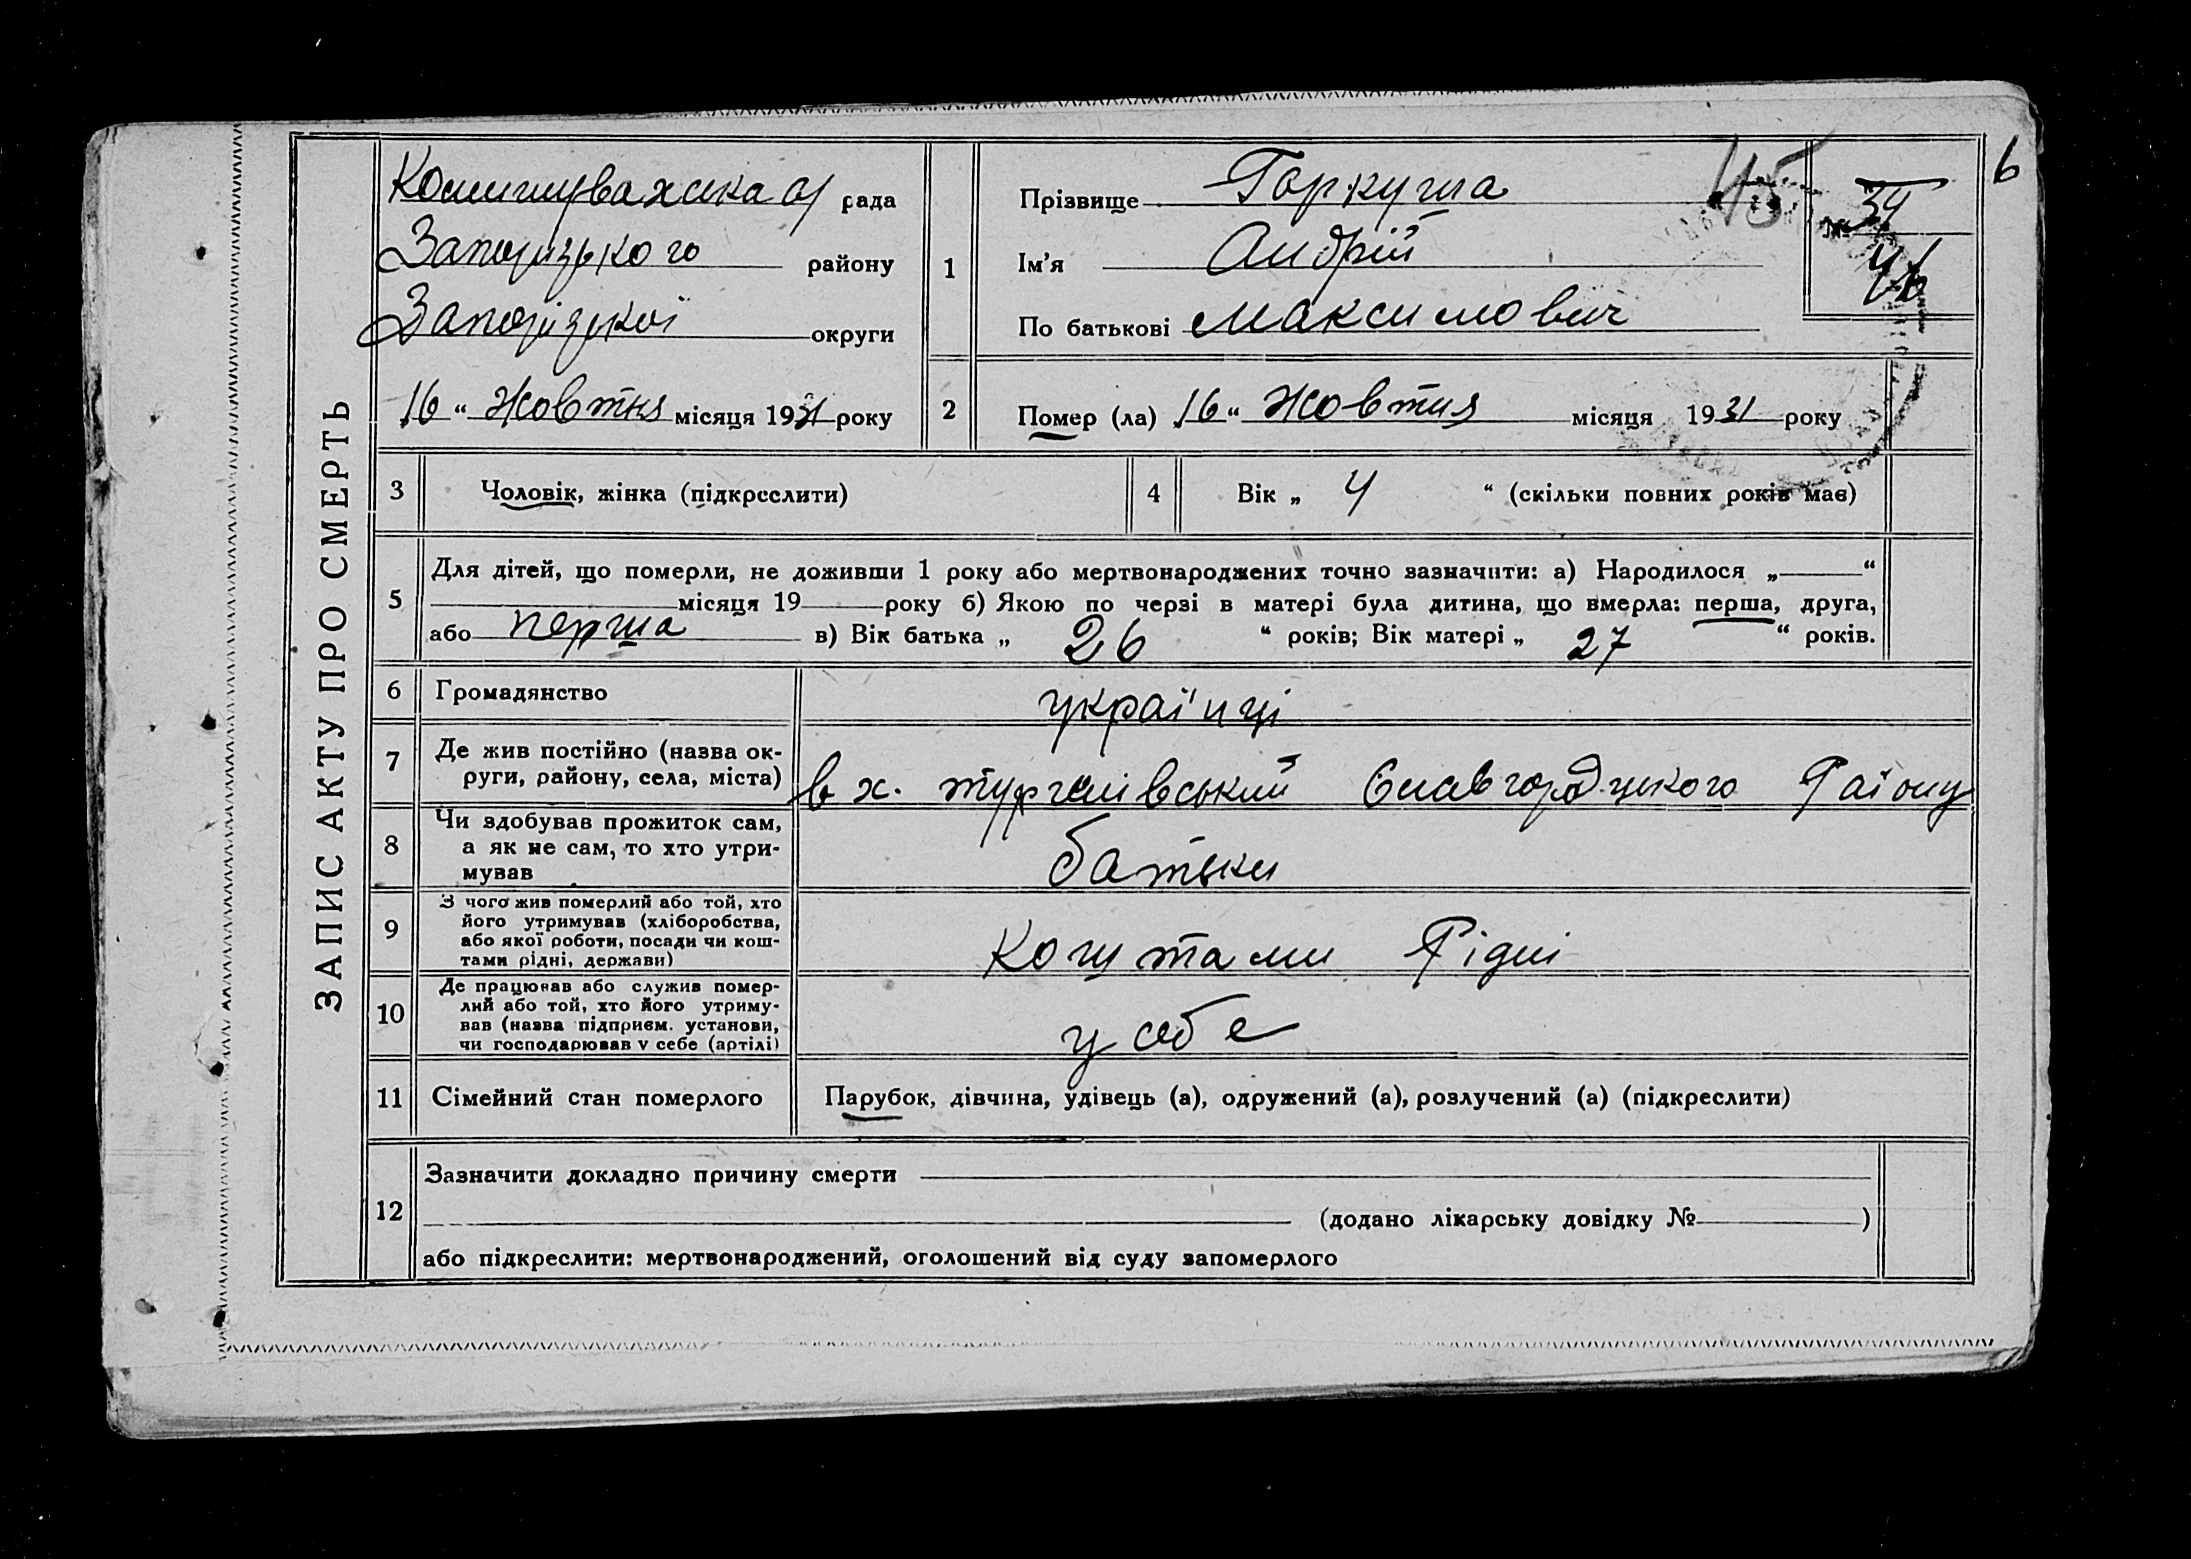 6
ЗАПИС АКТУ ПРО СМЕРТЬ
Комишуваська с/ рада
Запорізького району
Запорізької округи
16 „ Жовтня місяця 1931 року
1
Прізвище Горкуша
Ім’я Андрій
По батькові Максимович
45
№ 34
46
2
Помер (ла) 16 „ Жовтня місяця 1931 року
3
Чоловік, жінка (підкреслити)
4
Вік „ 4 “ (скільки повних років має)
5
Для дітей, що померли, не доживши 1 року або мертвонароджених точно зазначити: а) Народилося „ “
місяця 19 року б) Якою по черзі в матері була дитина, що вмерла: перша, друга,
або перша в) Вік батька „ 26 “ років; Вік матері „ 27 “ років.
6
Громадянство
українці
7
Де жив постійно (назва ок-
руги, району, села, міста)
в х. Славгородського Району
8
Чи здобував прожиток сам,
а як не сам, то хто утри-
мував
батьки
9
З чого жив померлий або той, хто
його утримував (хліборобства,
або якої роботи, посади чи кош-
тами рідні, держави)
Коштами Рідні
10
Де працював або служив помер-
лий або той, хто його утриму-
вав (назва підприєм. установи,
чи господарював у себе (артілі)
у себе
11
Сімейний стан померлого
Парубок, дівчина, удівець (а), одружений (а), розлучений (а) (підкреслити)
12
Зазначити докладно причину смерти
(додано лікарську довідку № )
або підкреслити: мертвонароджений, оголошений від суду запомерлого